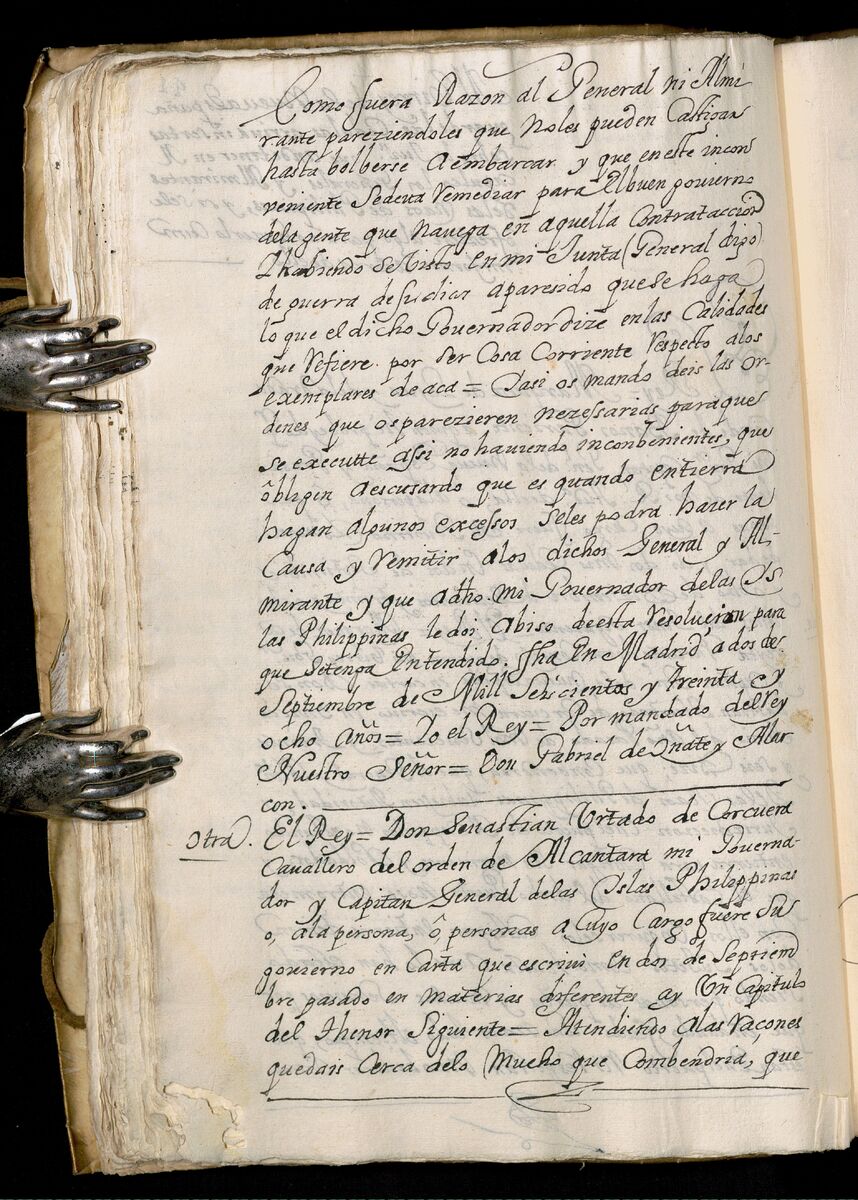 Como fuera Razon al General ni Almi
rante pareziendoles que Noles pueden Castigar
hasta bolberse aembarcar y que eneste incon
veniente Sedeva Remediar para Elbuen govierno
dela gente que Navega en aquella Contratacción
Y habiendo se visto en mi Junta (General digo)
de guerra de Indias aparesido que se haga
lo que el dicho Governador dize en las Calidades
que Refiere por ser Cosa Corriente Respecto alos
exemplares de aca = Yasi os mando deis las or-
denes que os parezieren nezessarias para que
se executte assi no haviendo inconbenientes, que
obligen aescusardo que es quando entierra
hagan algunos excessos seles podra hazer la
Causa y Remitir alos dichos General y Al-
mirante y que adho. mi Governador delas Ys
las Philippinas le doi abiso deesta Resolucion para
que Setenga Entendido. fha En Madrid a dos de
Septiembre de Mill Seiscientos y treinta y
ocho años = Yo el Rey = Por mandado del Rey
Nuestro Señor = Don Gabriel de Oñate y Alar
con.
Otra. El Rey = Don Sevastian Urtado de Corcuera
Cavallero del orden de Alcantara mi Governa-
dor y Capitan General delas Yslas Philippinas
o, ala persona, ô, personas a Cuyo Cargo fuere Su
govierno en Carta que escrivi en dos de Septiem
bre pasado en materias diferentes ay Un Capitulo
del thenor Siguiente = Atendiendo alas Raçones
quedais cerca delo Mucho que Combendria, que